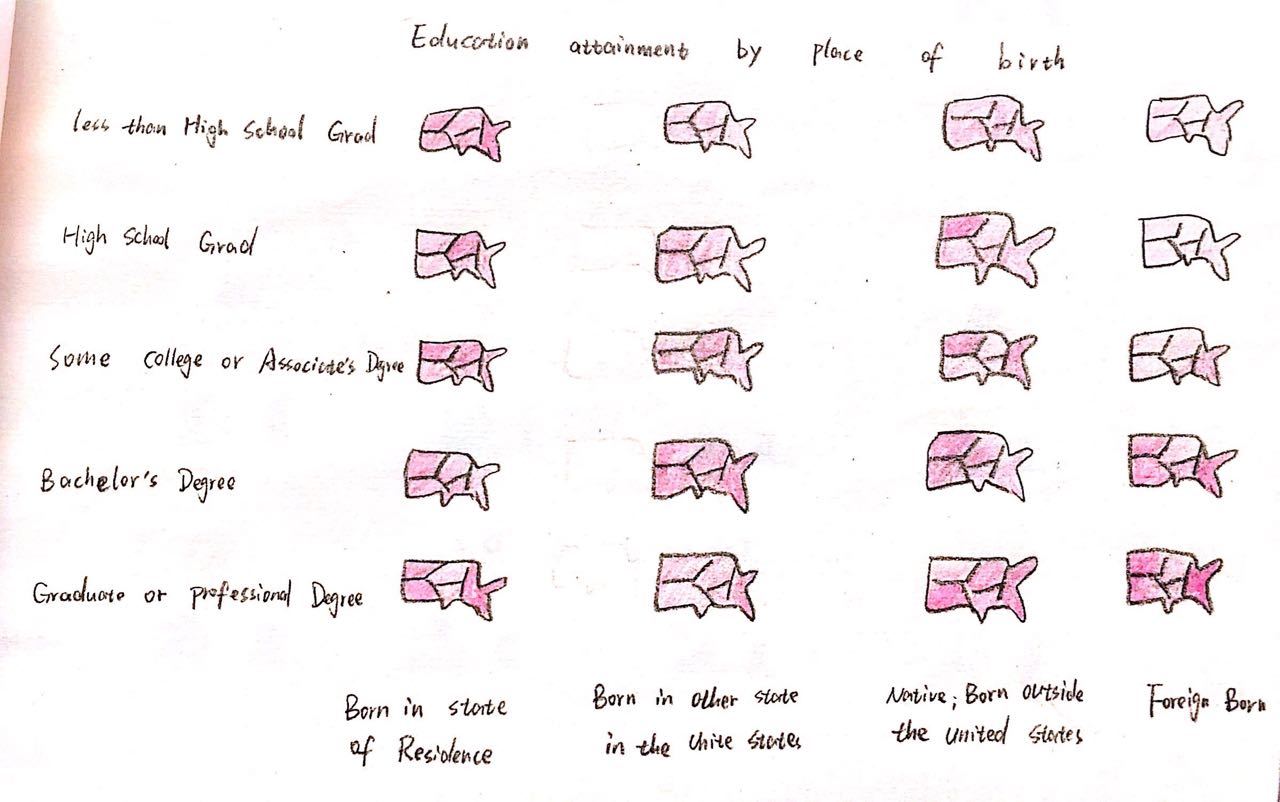 Education attainment by place of birth
less than High School Grad
High School Grad
Some college or Associate's Dgree
Bachelor's Degree
Graduate or professional Degree
Born in state
of Residence
Born in other state
in the Unite states
Native; Born outside
the united states
Foreign Born